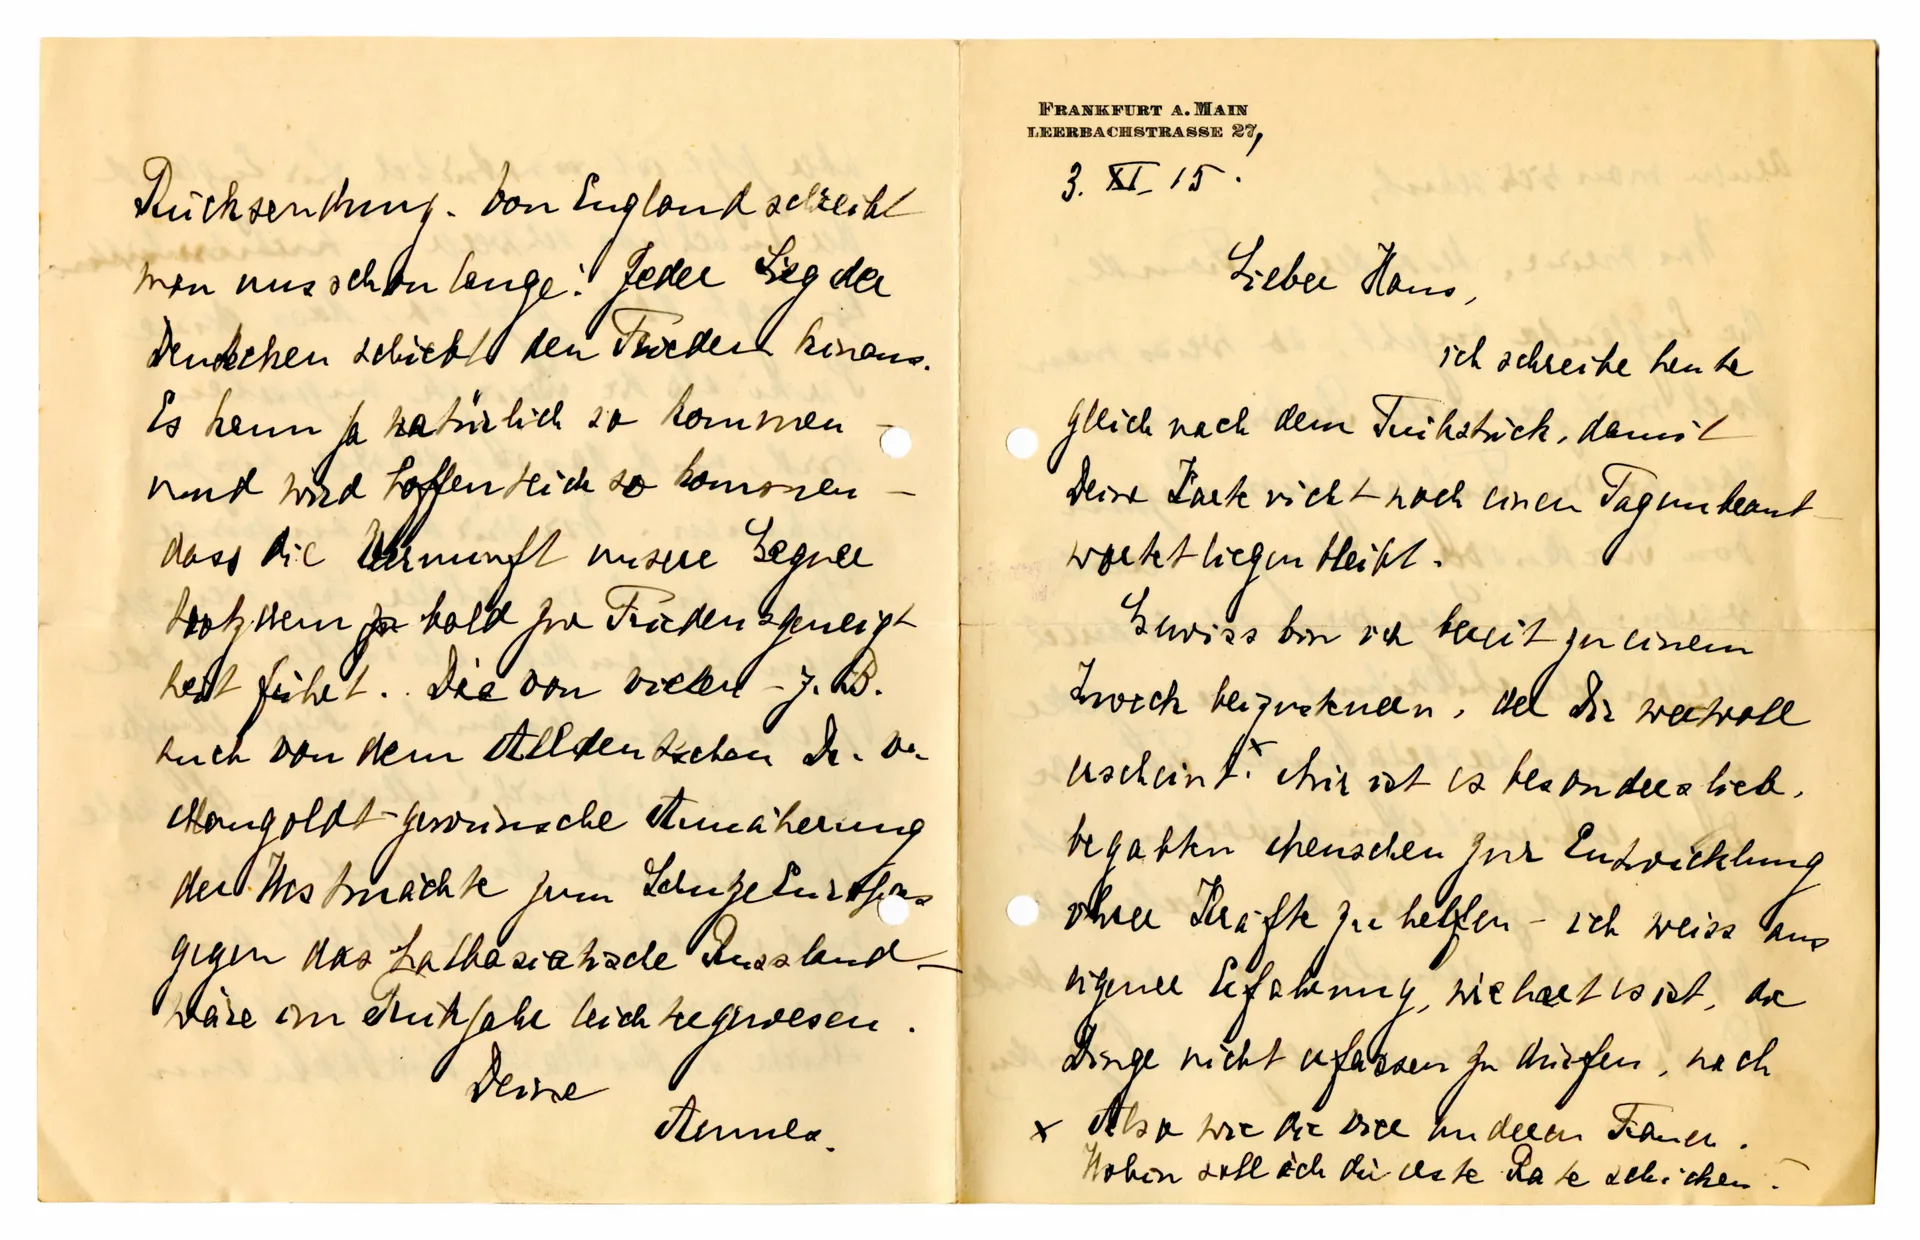 FRANKFURT A. MAIN
LEERBACHSTRASSE 27,
3. XI. 15.
Lieber Hans,
ich schreibe heute
gleich nach dem Frühstück, damit
Deine Karte nicht noch einen Tag unbeant-
wortet liegen bleibt.
Gewiss bin ich bereit zu einem
Zweck beizusteuern, der Dir wertvoll
erscheint.x Mir ist es besonders lieb,
begabten Menschen zur Entwicklung
ihrer Kräfte zu helfen – ich weiss aus
eigener Erfahrung, wie hart es ist, die
Dinge nicht erfassen zu dürfen, nach
x Also wie die vier anderen Frauen.
Wohin soll ich die erste Rate schicken?
Rücksendung. Von England schreibt
man uns schon lange: Jeder Sieg der
Deutschen schiebt den Frieden hinaus.
Es kann ja natürlich so kommen –
und wird hoffentlich so kommen –
dass die Vernunft unsere Gegner
trotzdem bald zur Friedensgeneigt
heit führt. Die von vielen – z. B.
auch von dem Alldeutschen Dr. v.
Mangoldt – gewünschte Annäherung
der Westmächte zum Schutze Europas
gegen das halbasiatische Russland –
wäre im Frühjahr leichter gewesen.
Deine
Anna.